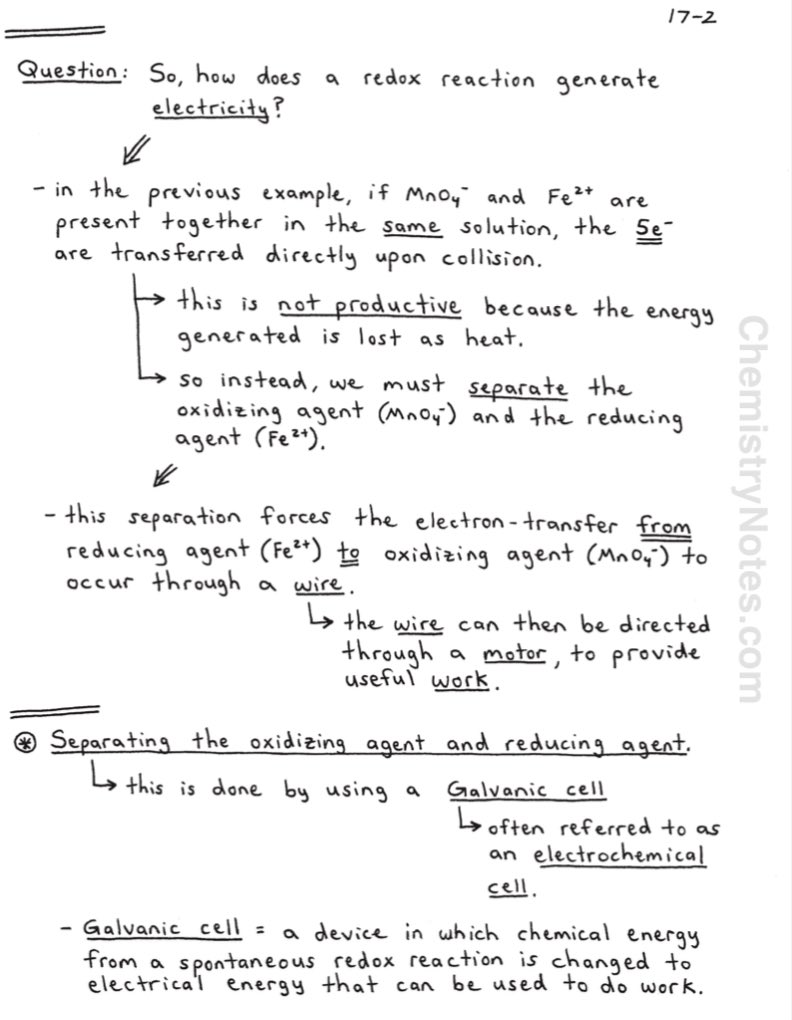 17-2
Question: So, how does a redox reaction generate
electricity?
- in the previous example, if MnO₄⁻ and Fe²⁺ are
present together in the same solution, the 5e⁻
are transferred directly upon collision.
→ this is not productive because the energy
generated is lost as heat.
→ so instead, we must separate the
oxidizing agent (MnO₄⁻) and the reducing
agent (Fe²⁺).
- this separation forces the electron-transfer from
reducing agent (Fe²⁺) to oxidizing agent (MnO₄⁻) to
occur through a wire.
↳ the wire can then be directed
through a motor, to provide
useful work.
⊛ Separating the oxidizing agent and reducing agent.
↳ this is done by using a Galvanic cell
↳ often referred to as
an electrochemical
cell.
- Galvanic cell = a device in which chemical energy
from a spontaneous redox reaction is changed to
electrical energy that can be used to do work.
ChemistryNotes.com